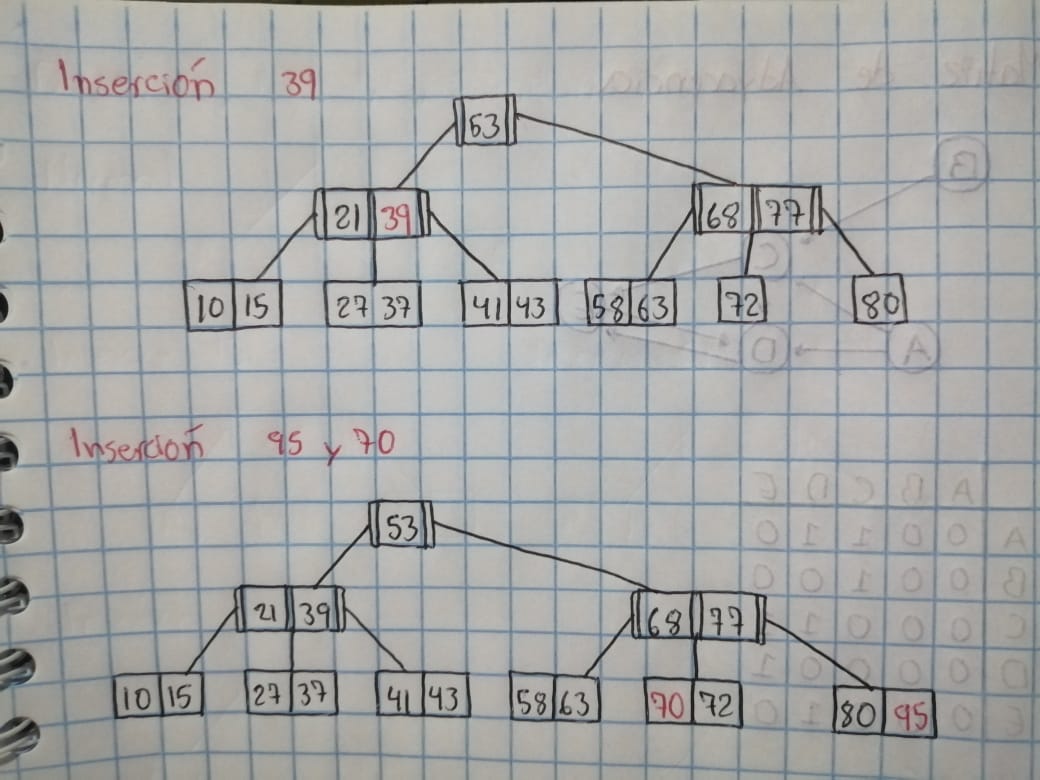 Inserción 39
53
21 39 68 77
10 15 27 37 41 43 58 63 72 80
Inserción 95 y 70
53
21 39 68 77
10 15 27 37 41 43 58 63 70 72 80 95